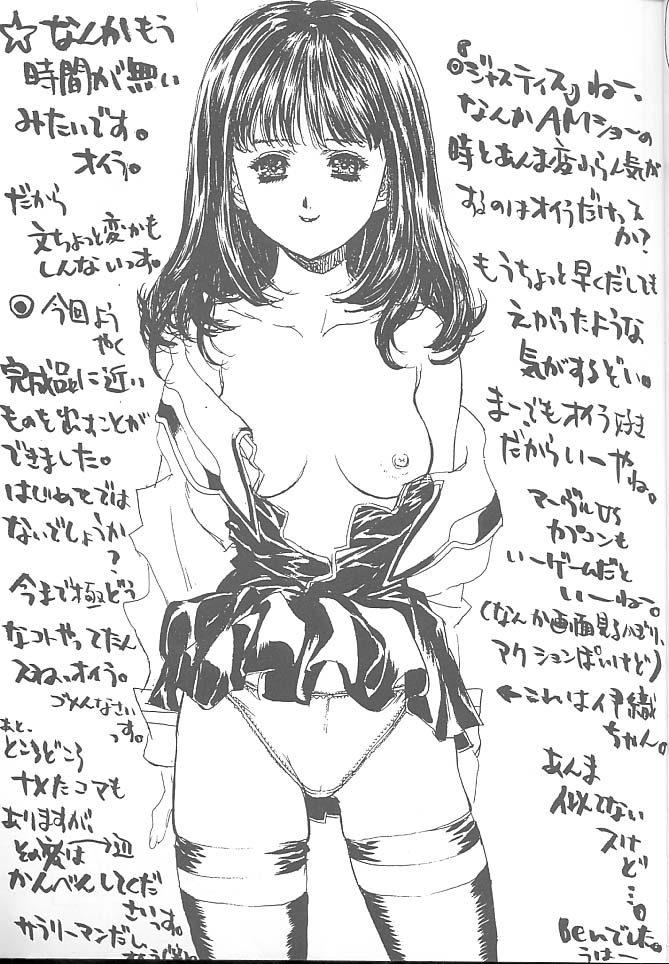 ☆なんかもう
時間が無い
みたいです。
オイラ。
だから
文ちょっと変かも
しんないっす。
◎今回よう
やく
完成品に近い
ものを出すことが
できました。
はじめてでは
ないでしょうか
?
今まで極どう
なコトやってたん
スね、オイラ。
ゴメんなさい
っす。
あと、
ところどころ
ナメたコマも
ありますが、
その変は一辺
かんべんしてくだ
さいっす。
サラリーマンだし
◎『ジャスティス』ねー、
なんかAMショーの
時とあんま変ふら人気が
するのはオイラだけっスか?
もうちょっと早くだしても
えがったような
気がするぞい。
まーでもオイラ好き
だからいーやね。
マーヴルVS
カプコンも
いーゲームだと
いーねー。
(なんか画面見るかぎり、
アクションぽいけど)
←これは伊織
ちゃん。
あんま
似てない
スけ
ど…。
Benでした。
うはー